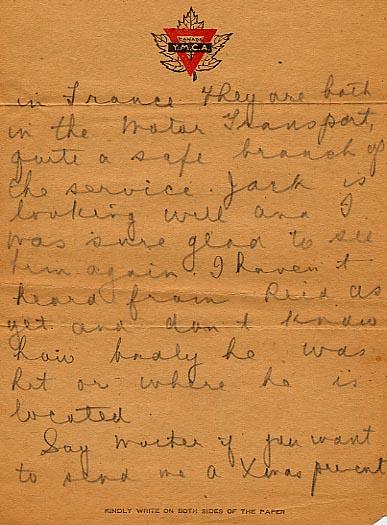 CANADA
Y.M.C.A.
in France they are both
in the Motor Transport,
quite a safe branch of
the service. Jack is
looking well and I
was sure glad to see
him again. I haven't
heard from Reid as
yet and don't know
how badly he was
hit or where he is
located
Say Mother if you want
to send me a Xmas present
KINDLY WRITE ON BOTH SIDES OF THE PAPER